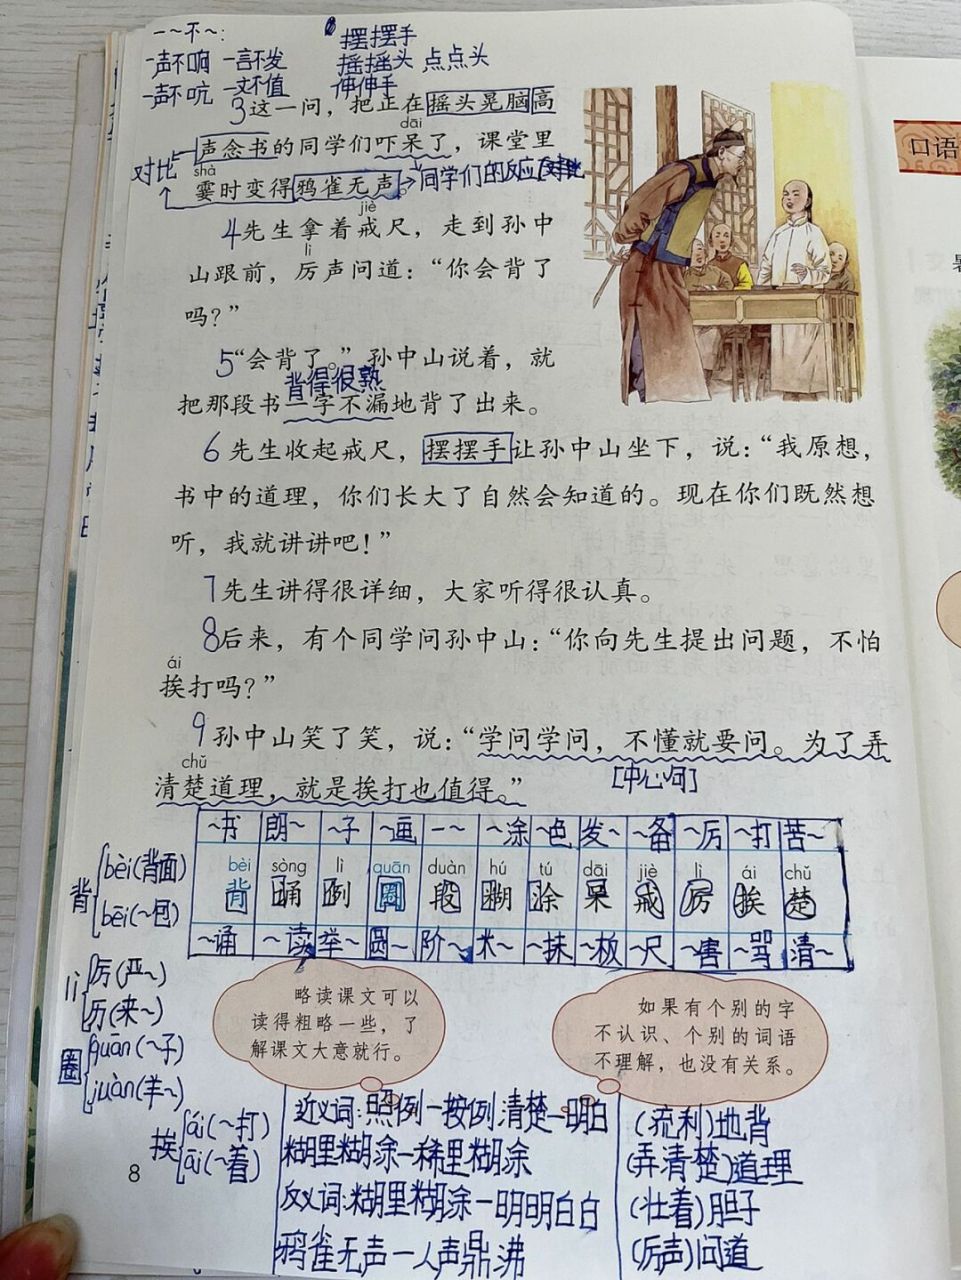 一~不~:
一声不响 一言不发
一声不吭 一文不值
摆摆手
摇摇头 点点头
伸伸手
3这一问，把正在摇头晃脑高
dāi
声念书的同学们吓呆了，课堂里
对比
shà
霎时变得鸦雀无声。
同学们的反应对比
jiè
4先生拿着戒尺，走到孙中
lì
山跟前，厉声问道：“你会背了
吗？”
5“会背了。”孙中山说着，就
背得很熟
把那段书一字不漏地背了出来。
6先生收起戒尺，摆摆手让孙中山坐下，说：“我原想，
书中的道理，你们长大了自然会知道的。现在你们既然想
听，我就讲讲吧！”
7先生讲得很详细，大家听得很认真。
8后来，有个同学问孙中山：“你向先生提出问题，不怕
ái
挨打吗？”
9孙中山笑了笑，说：“学问学问，不懂就要问。为了弄
chǔ
清楚道理，就是挨打也值得。”
[中心句]
~书 朗~ ~子 ~画 一~ ~涂 ~色 发~ ~备 ~厉 ~打 苦~
bèi sòng lì quān duàn hú tú dāi jiè lì ái chǔ
背 诵 例 圈 段 糊 涂 呆 戒 厉 挨 楚
~诵 ~读 举~ 圆~ 阶~ 米~ ~抹 ~板 ~尺 ~害 ~骂 清~
背 bèi(背面)
bēi(~包)
lì 厉(严~)
历(来~)
圈 quān(~子)
juàn(羊~)
挨 ái(~打)
āi(~着)
略读课文可以
读得粗略一些，了
解课文大意就行。
如果有个别的字
不认识、个别的词语
不理解，也没有关系。
近义词:照例一按例 清楚一明白
糊里糊涂一稀里糊涂
反义词:糊里糊涂一明明白白
鸦雀无声一人声鼎沸
(流利)地背
(弄清楚)道理
(壮着)胆子
(厉声)问道
8
口语